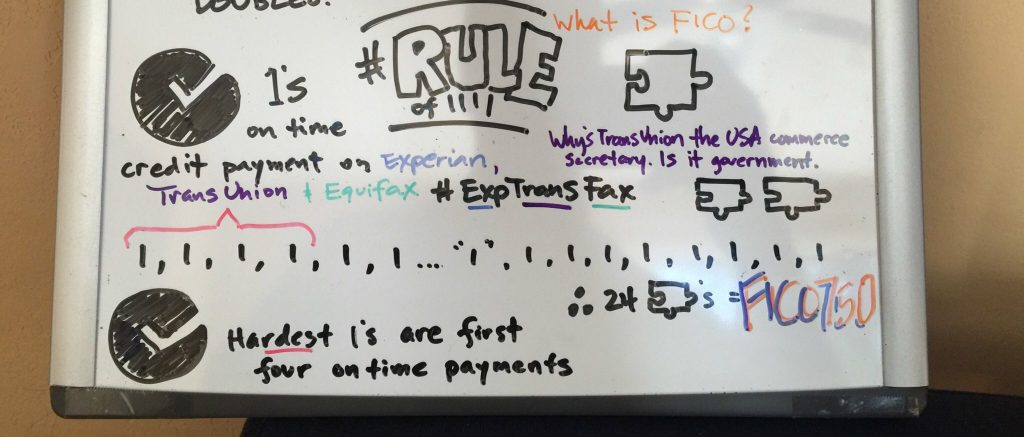 DOUBLES!
What is FICO?
#RULE
of 1111
1's
on time
credit payment on Experian,
TransUnion & Equifax #ExpTransFax
Why's TransUnion the USA commerce
secretary. Is it government.
1, 1, 1, 1, 1, 1... "1", 1, 1, 1, 1, 1, 1, 1, 1, 1
∴ 24 's = FICO 750
Hardest 1's are first
four on time payments